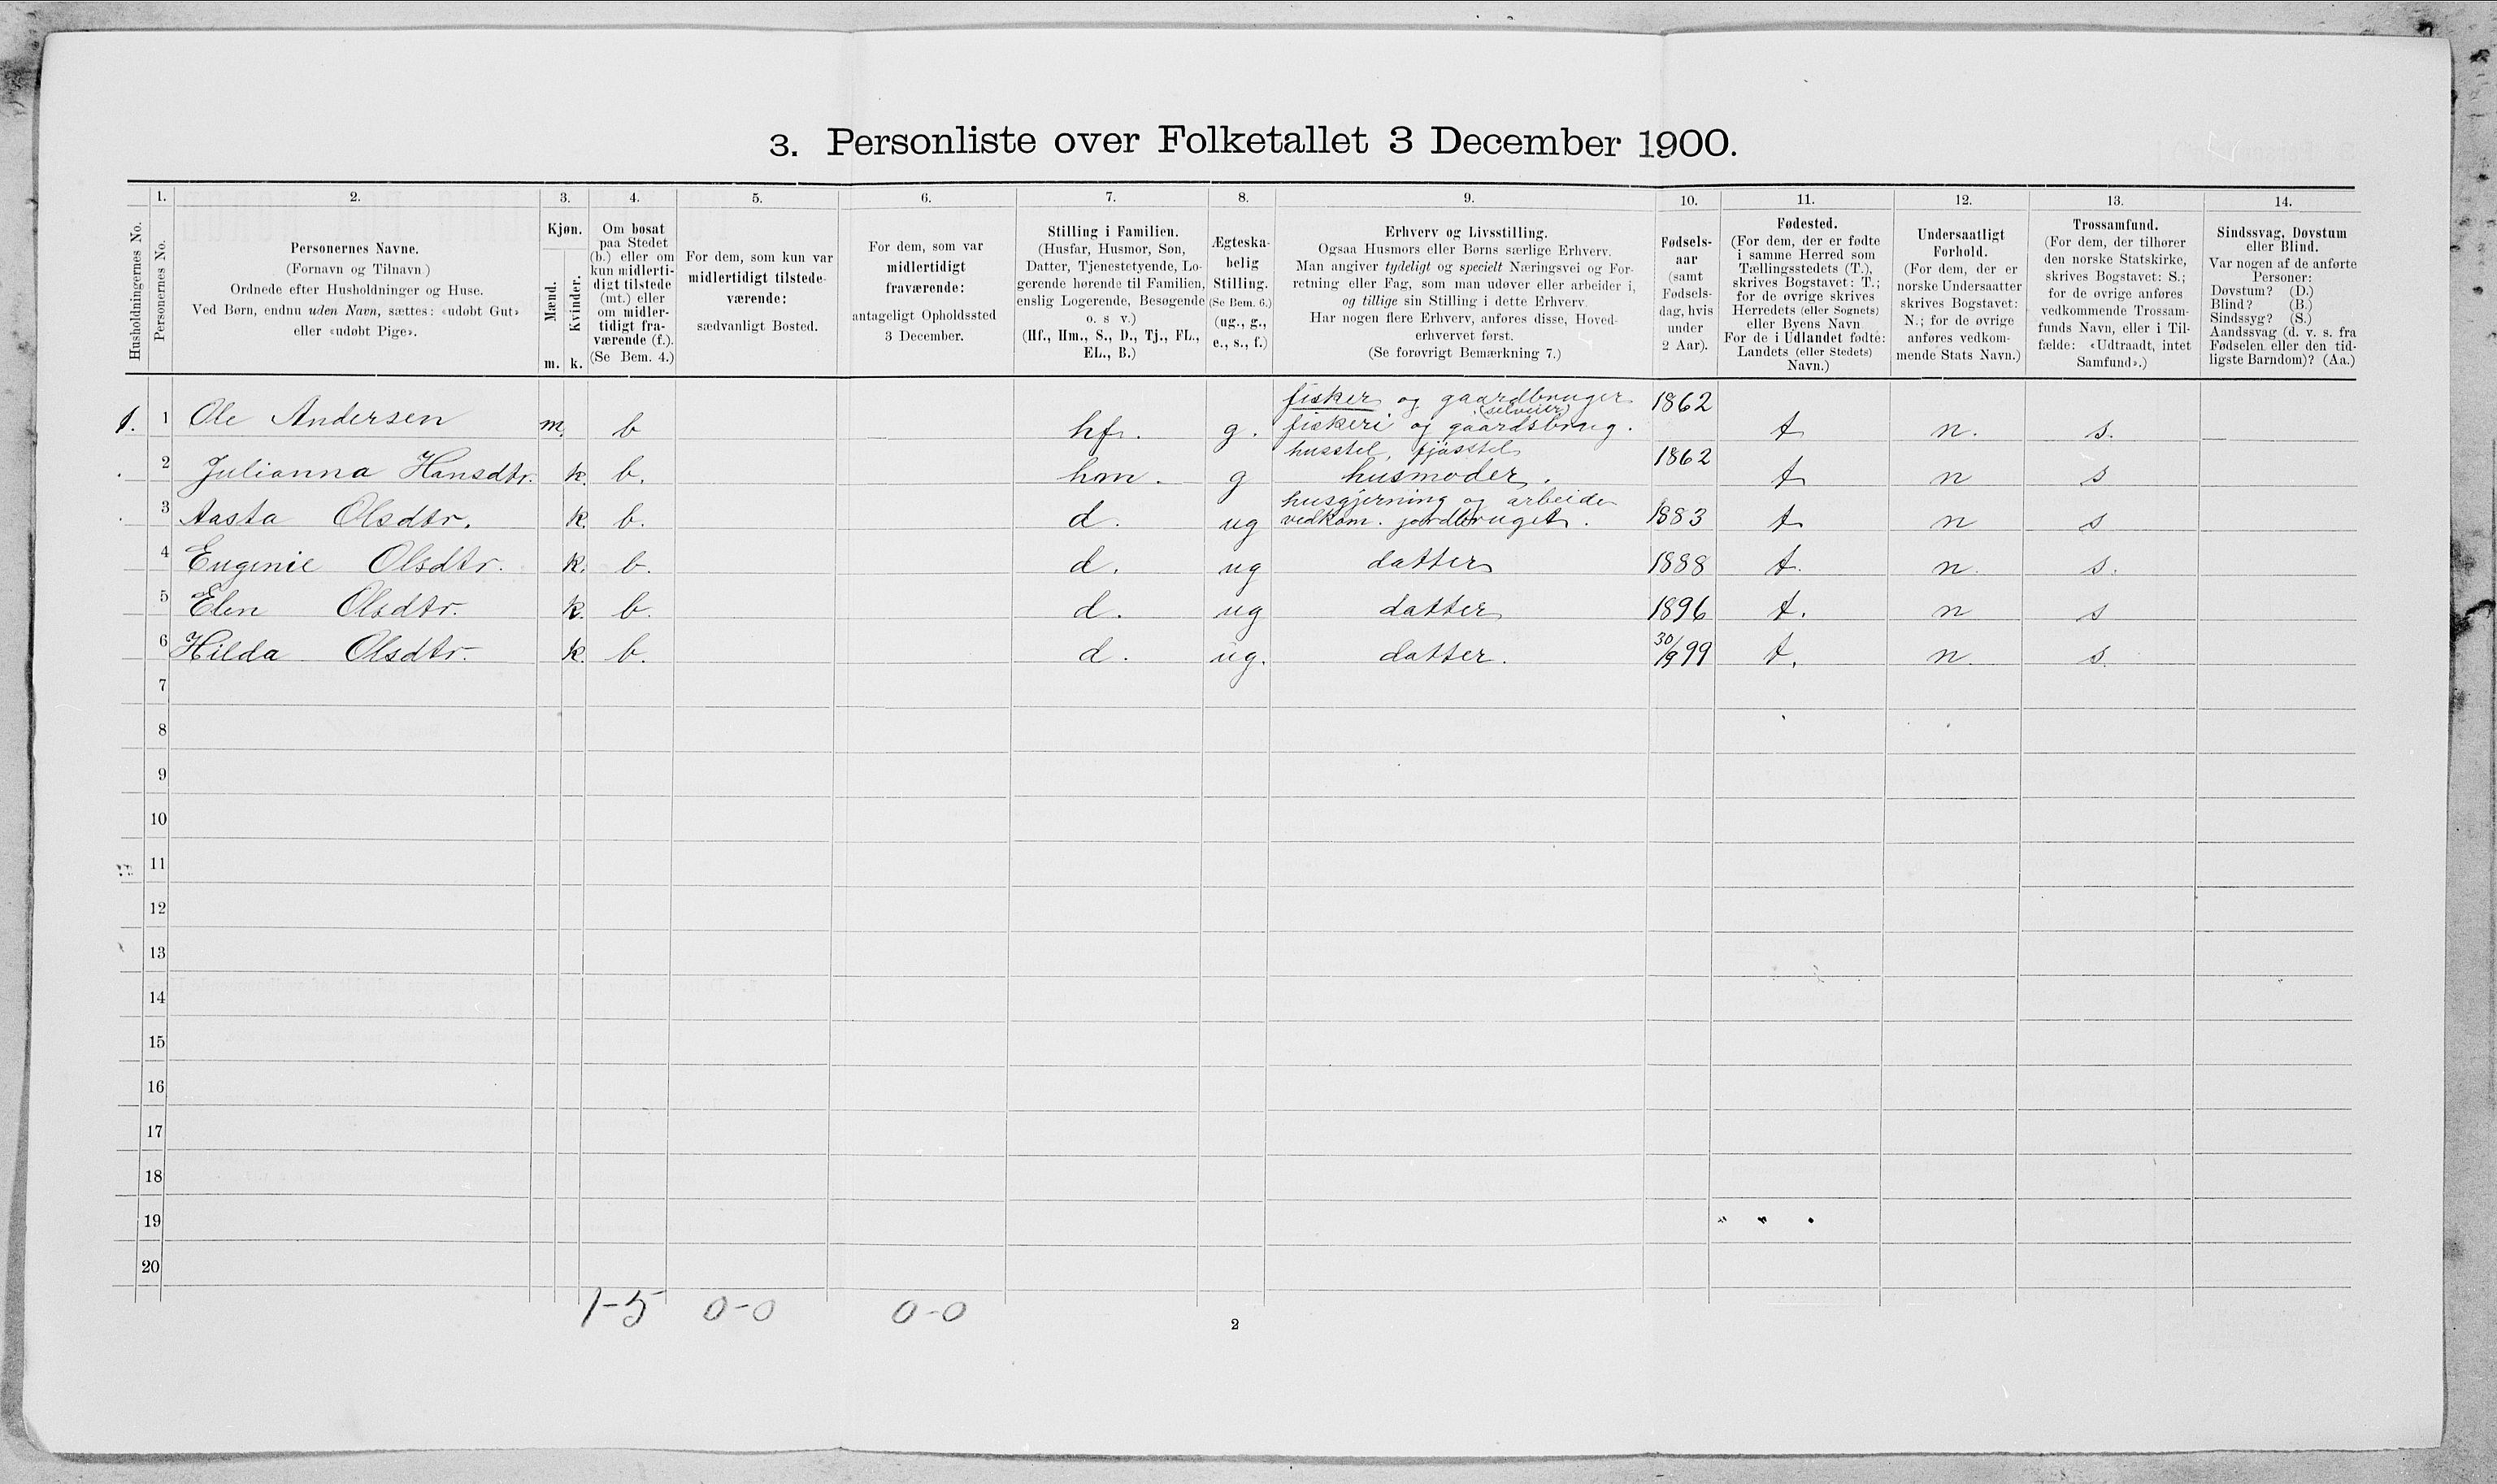 3. Personliste over Folketallet 3 December 1900.
Husholdningernes No.
1.
Personernes No.
2.
Personernes Navne.
(Fornavn og Tilnavn)
Ordnede efter Husholdninger og Huse.
Ved Børn, endnu uden Navn, sættes: «udøbt Gut»
eller «udøbt Pige».
3.
Kjøn.
Mænd.
Kvinder.
m. k.
4.
Om bosat
paa Stedet
(b.) eller om
kun midlerti-
digt tilstede
(mt.) eller
om midler-
tidigt fra-
værende (f.).
(Se Bem. 4.)
5.
For dem, som kun var
midlertidigt tilstede-
værende:
sædvanligt Bosted.
6.
For dem, som var
midlertidigt
fraværende:
antageligt Opholdssted
3 December.
7.
Stilling i Familien.
(Husfar, Husmor, Søn,
Datter, Tjenestetyende, Lo-
gerende hørende til Familien,
enslig Logerende, Besøgende
o. s v.)
(Hf., Hm., S., D., Tj., FL.,
EL., B.)
8.
Ægteska-
belig
Stilling.
(Se Bem. 6.)
(ug., g.,
e., s., f.)
9.
Erhverv og Livsstilling.
Ogsaa Husmors eller Børns særlige Erhverv.
Man angiver tydeligt og specielt Næringsvei og For-
retning eller Fag, som man udøver eller arbeider i,
og tillige sin Stilling i dette Erhverv.
Har nogen flere Erhverv, anføres disse, Hoved-
erhvervet først.
(Se forøvrigt Bemærkning 7.)
10.
Fødsels-
aar
(samt
Fødsels-
dag, hvis
under
2 Aar).
11.
Fødested.
(For dem, der er fødte
i samme Herred som
Tællingsstedets (T.),
skrives Bogstavet: T.;
for de øvrige skrives
Herredets (eller Sognets)
eller Byens Navn
For de i Udlandet fødte:
Landets (eller Stedets)
Navn.)
12.
Undersaatligt
Forhold.
(For dem, der er
norske Undersaatter
skrives Bogstavet:
N.; for de øvrige
anføres vedkom-
mende Stats Navn.)
13.
Trossamfund.
(For dem, der tilhører
den norske Statskirke,
skrives Bogstavet: S.;
for de øvrige anføres
vedkommende Trossam-
funds Navn, eller i Til-
fælde: «Udtraadt, intet
Samfund».)
14.
Sindssvag, Døvstum
eller Blind.
Var nogen af de anførte
Personer:
Døvstum? (D.)
Blind? (B.)
Sindssyg? (S.)
Aandssvag (d. v. s. fra
Fødselen eller den tid-
ligste Barndom)? (Aa.)
fisker og gaardbruger
(selveier)
1. 1 Ole Andersen m. b hf. g. fiskeri og gaardsbrug. 1862 t n. s.
husstel, fjøsstel
2 Julianna Hansdtr. k. b. hm. g husmoder. 1862 t n s
husgjerning og arbeide
3 Aasta Olsdtr. k. b. d. ug vedkom. jordbruget. 1883 t n s
4 Eugenie Olsdtr. k. b. d. ug datter 1888 t. n. s.
5 Elen Olsdtr. k. b. d. ug datter 1896 t. n s
6 Hilda Olsdtr. k. b. d. ug. datter. 30/9 99 t. n. s.
7
8
9
10
11
12
13
14
15
16
17
18
19
20
1-5 0-0 0-0
2